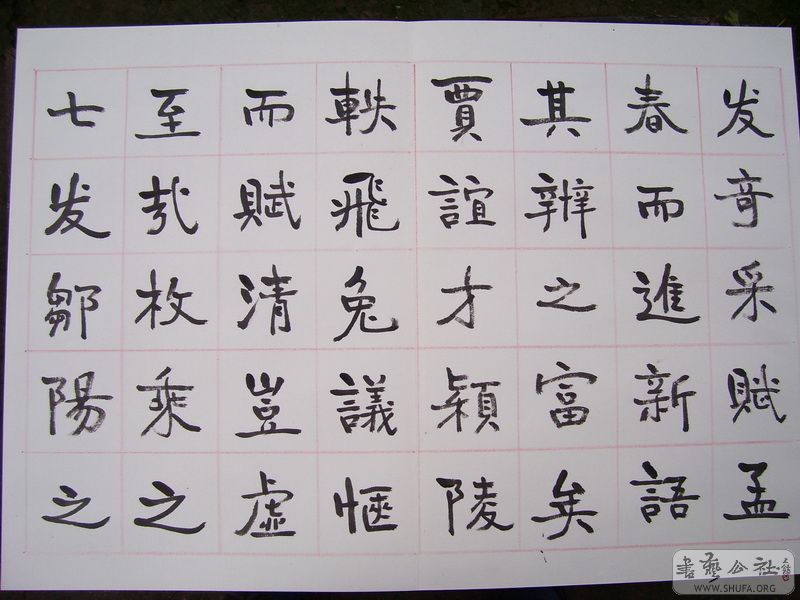 发奇采賦孟
春而進新語
其辨之富矣
賈誼才穎陵
軼飛兔議愜
而賦清豈虛
至哉枚乘之
七发鄒陽之
書藝公社
WWW.SHUFA.ORG